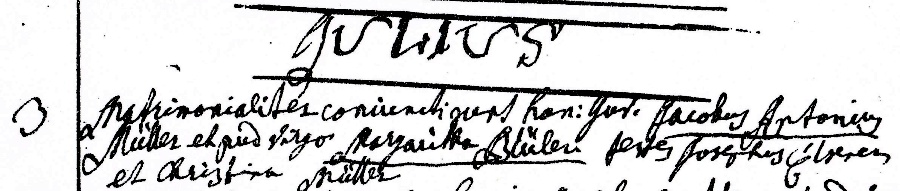 Julius
3 Matrimonialiter coniuncti sunt hon: Juv. Jacobus Antonius
Müller et pud virgo Margaritha Blüler testes Josephus
et Christina Müller